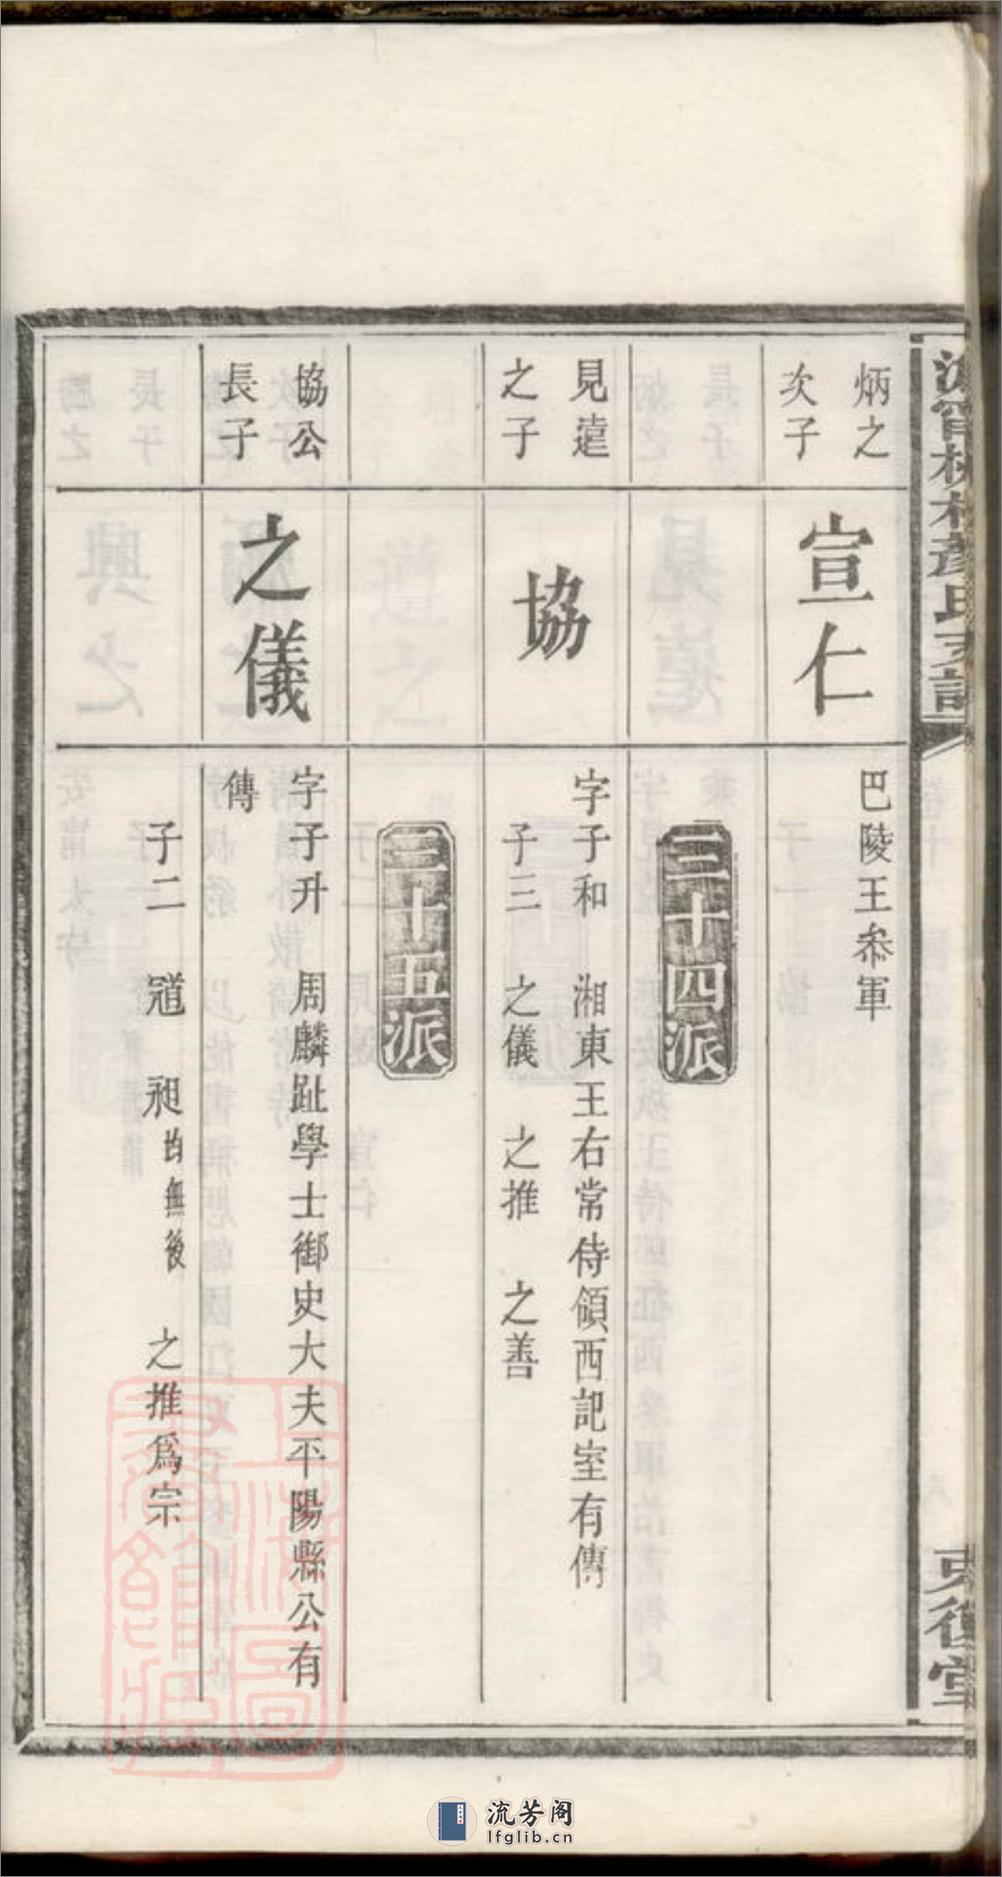 炳之
次子
宣仁
巴陵王叅軍
三十四派
見遠
之子
協
字子和 湘東王右常侍領西記室有傳
子三 之儀 之推 之善
三十五派
協公
長子
之儀
字子升 周麟趾學士御史大夫平陽縣公有
傳
子二 昶均無後 之推為宗
克復堂
流芳阁
lfglib.cn